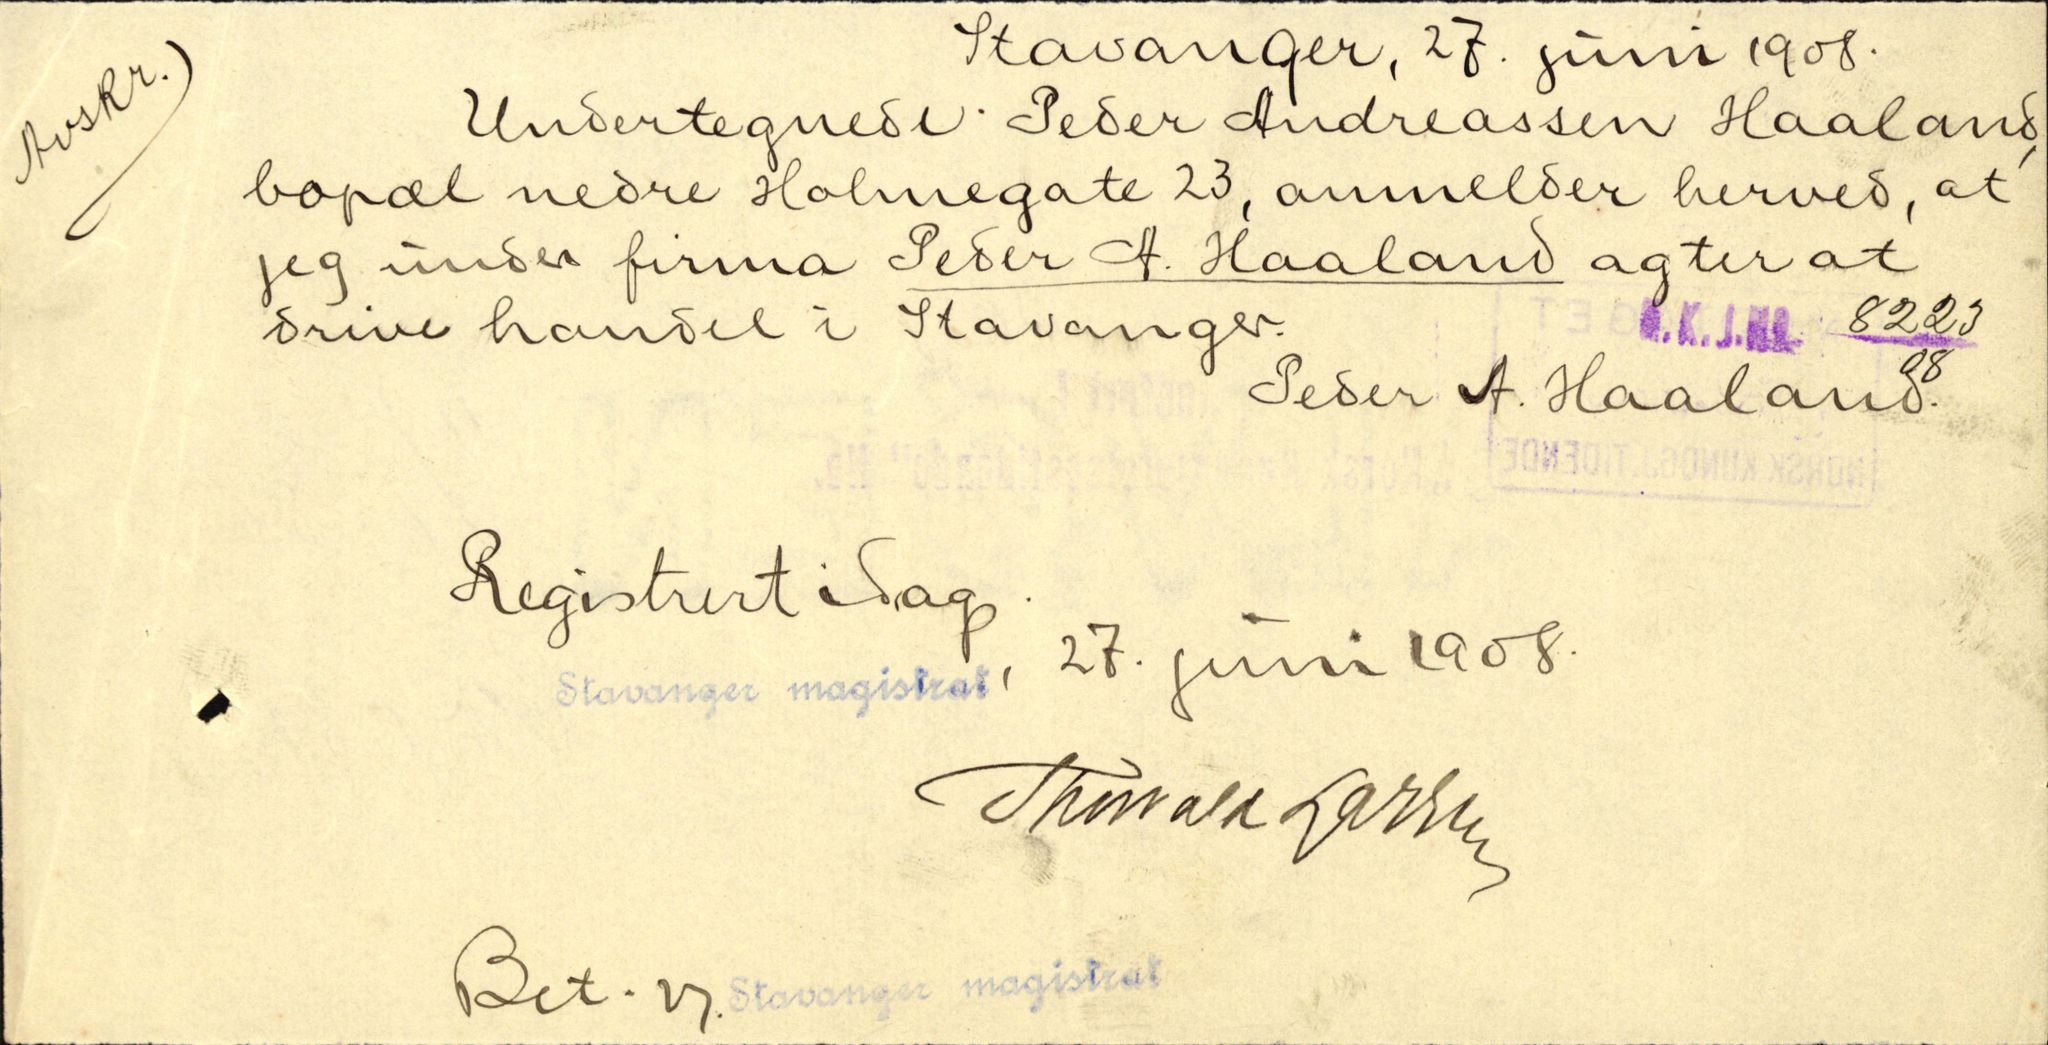 Avskr.)
Stavanger, 27. juni 1908.
Undertegnede Peder Andreassen Haaland,
bopæl nedre Holmegate 23, anmelder herved, at
jeg under firma Peder A. Haaland agter at
drive handel i Stavanger.
8223
08
Peder A. Haaland.
NORSK KUNDGJ.TIDENDE
Registrert idag.
Stavanger magistrat, 27. juni 1908.
Thorvald Larsen
Bet. Stavanger magistrat